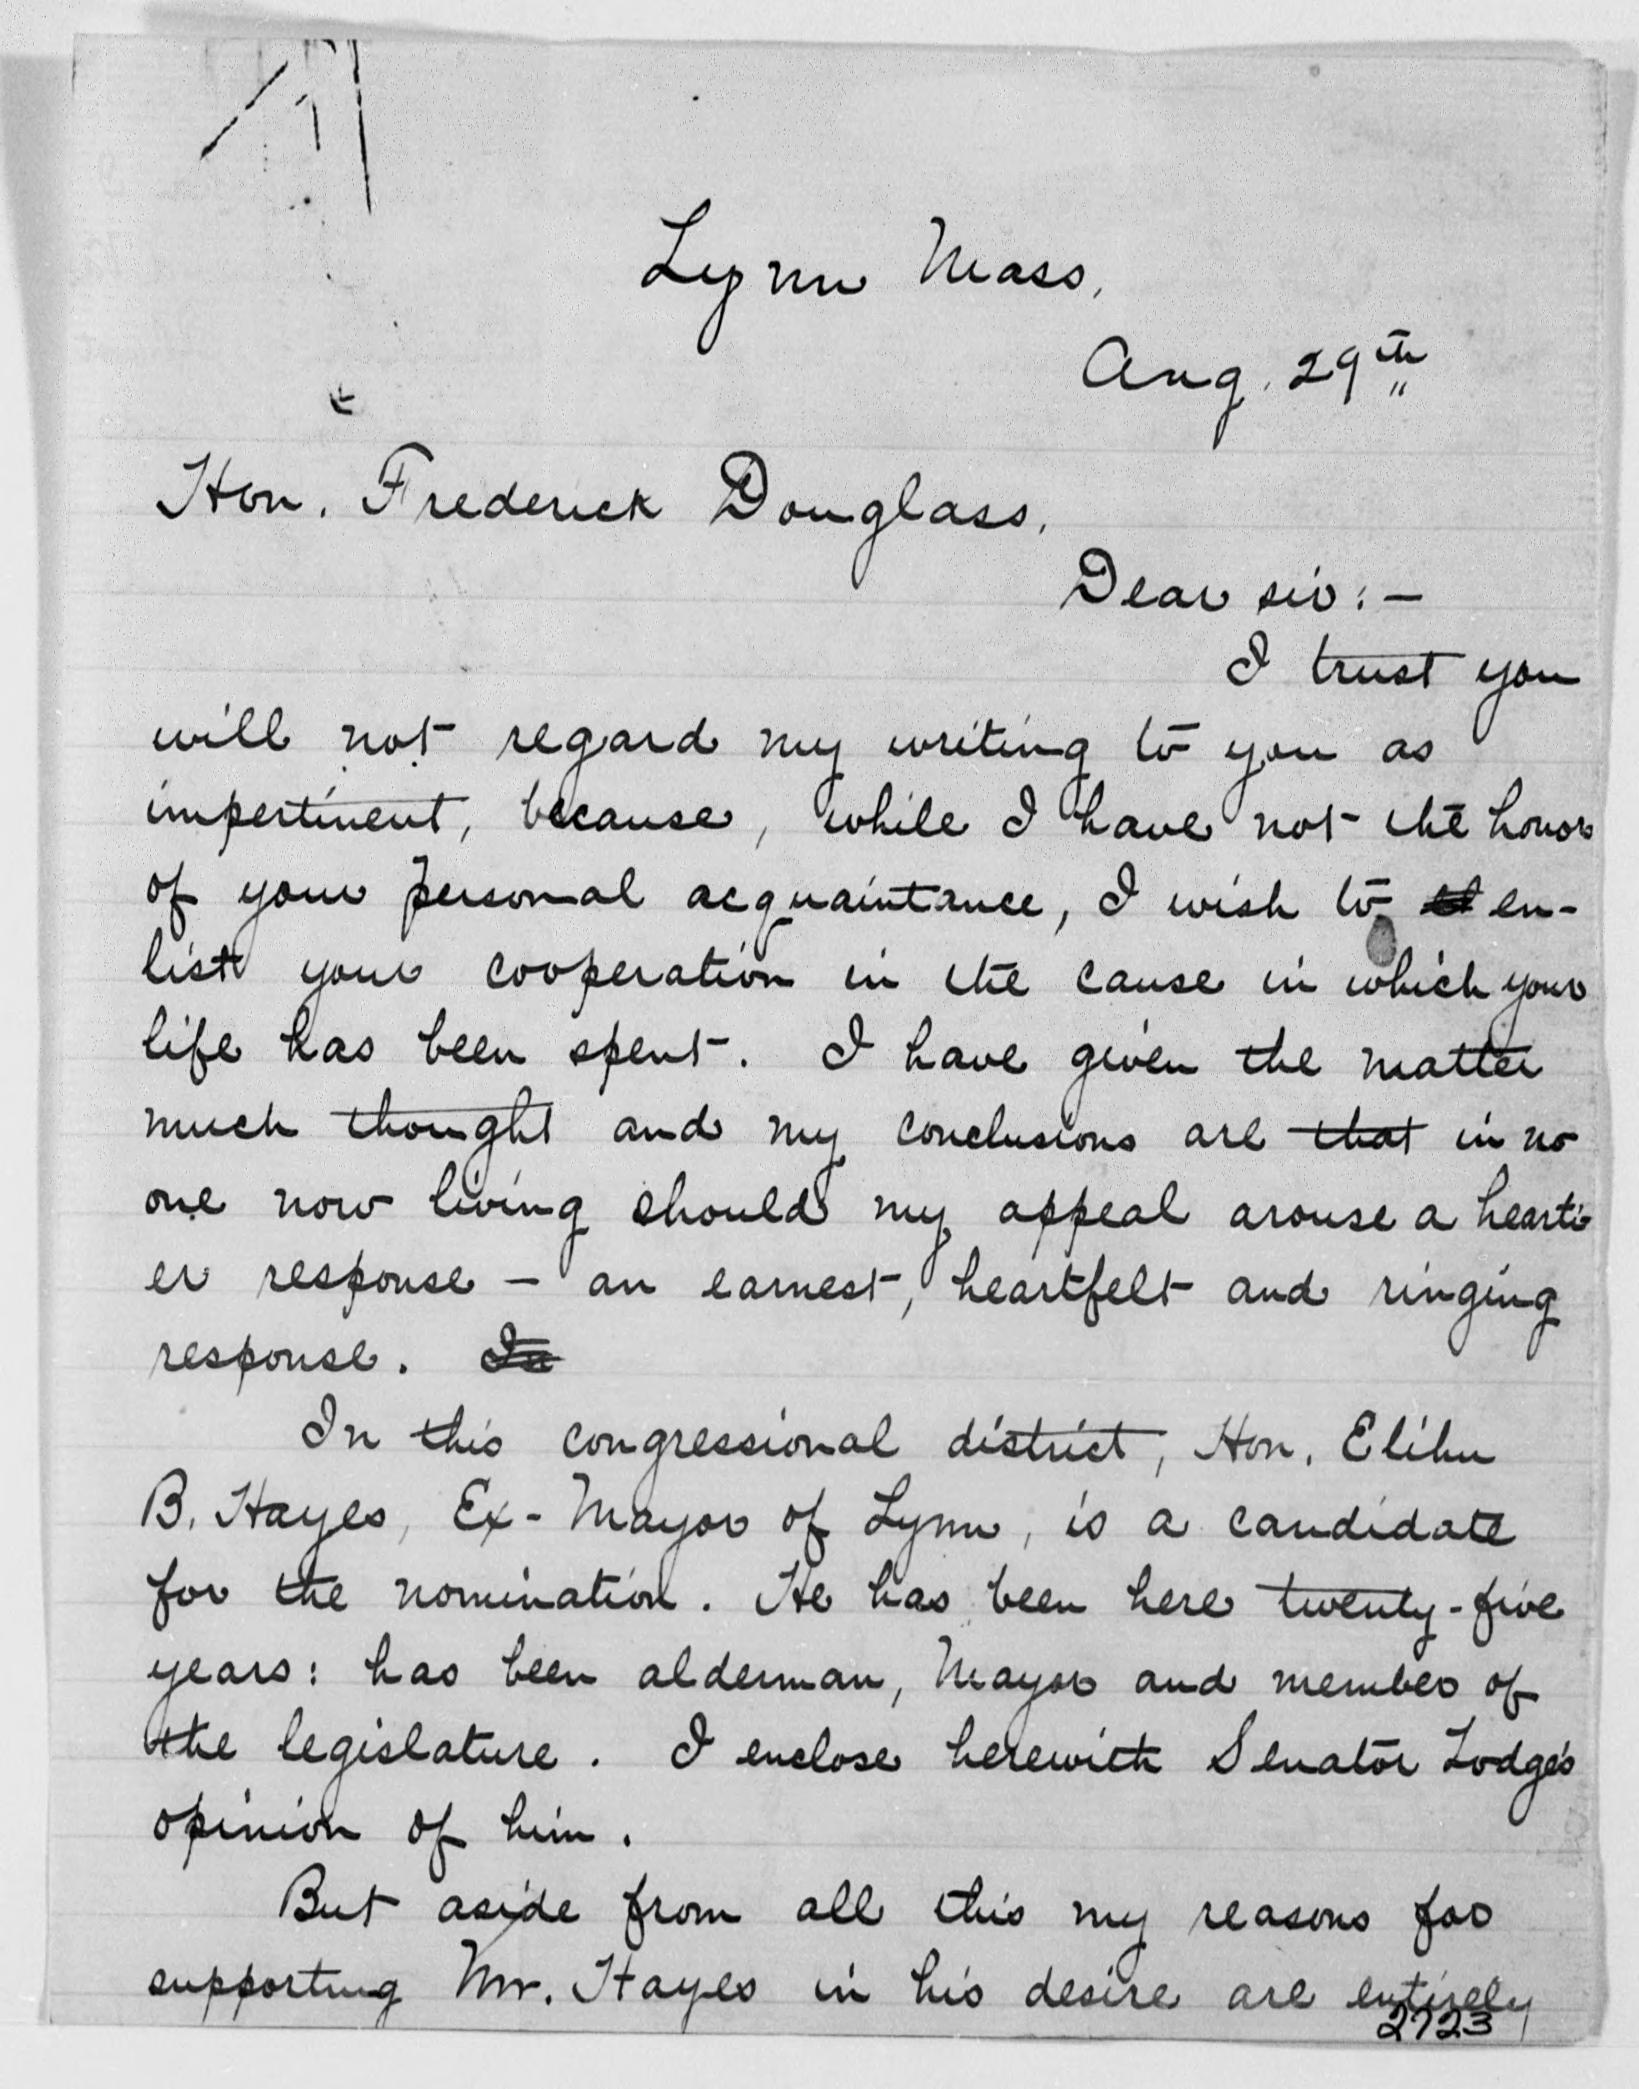 Lynn Mass,
Aug. 29th
Hon. Frederick Douglass,
Dear sir: —
I trust you
will not regard my writing to you as
impertinent, because, while I have not the honor
of your personal acquaintance, I wish to en-
list your cooperation in the cause in which your
life has been spent. I have given the matter
much thought and my conclusions are that in no
one now living should my appeal arouse a hearti-
er response — an earnest, heartfelt and ringing
response. In
In this congressional district, Hon. Elihu
B. Hayes, Ex-Mayor of Lynn, is a candidate
for the nomination. He has been here twenty-five
years: has been alderman, Mayor and member of
the legislature. I enclose herewith Senator Lodge's
opinion of him.
But aside from all this my reasons for
supporting Mr. Hayes in his desire are entirely
2723